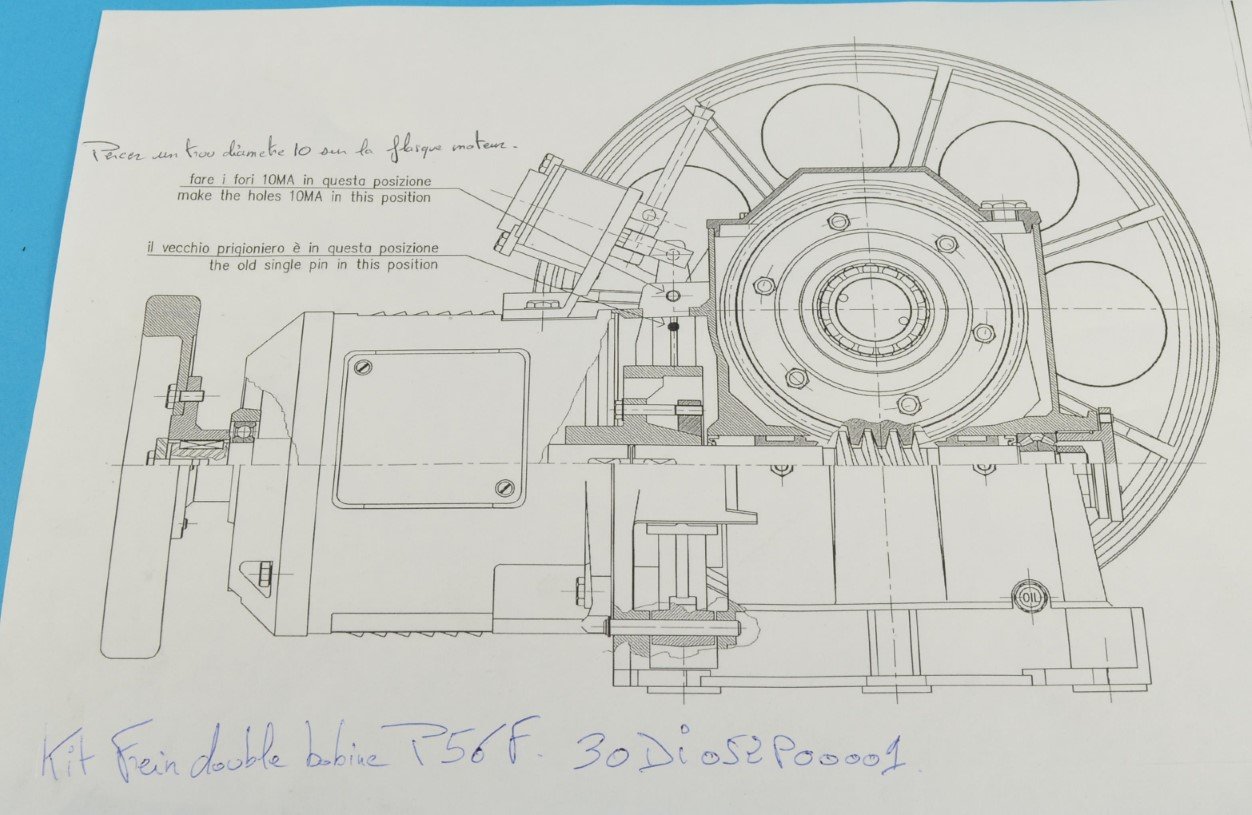 Percer un trou diametre 10 sur la flasque moteur.
fare i fori 10MA in questa posizione
make the holes 10MA in this position
il vecchio prigioniero è in questa posizione
the old single pin in this position
OIL
Kit Frein double bobine P56F. 30Di052P00001